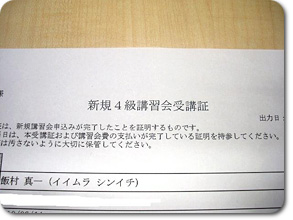 新規４級講習会受講証
出力日：
証は、新規講習会申込みが完了したことを証明するものです。
日は、本受講証および講習会費の支払いが完了している証明を持参してください。
は汚さないように大切に保管してください。
飯村 真一（イイムラ シンイチ）